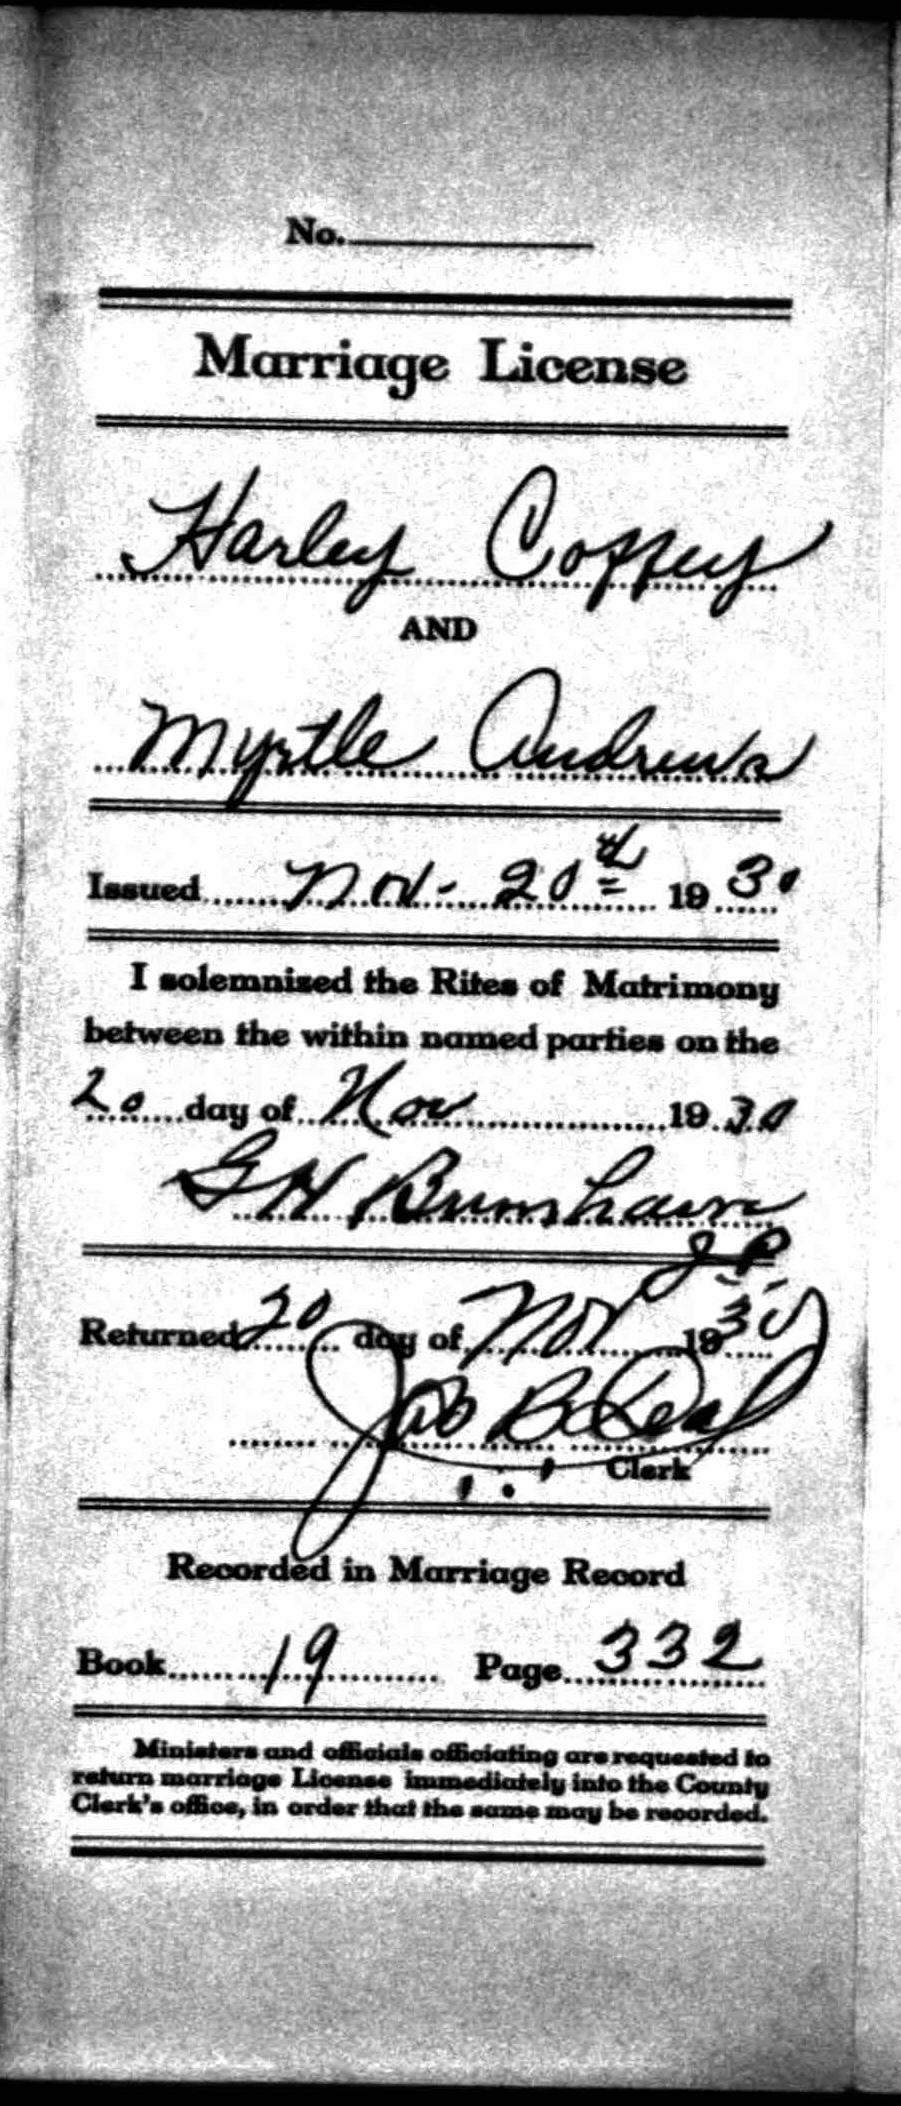 No.
Marriage License
Harley Coffey
AND
Myrtle Andrews
Issued Nov - 20th 1930
I solemnized the Rites of Matrimony
between the within named parties on the
20 day of Nov 1930
G H
J. P.
Returned 20 day of Nov 1930
Clerk
Recorded in Marriage Record
Book 19 Page 332
Ministers and officials officiating are requested to
return marriage License immediately into the County
Clerk's office, in order that the same may be recorded.